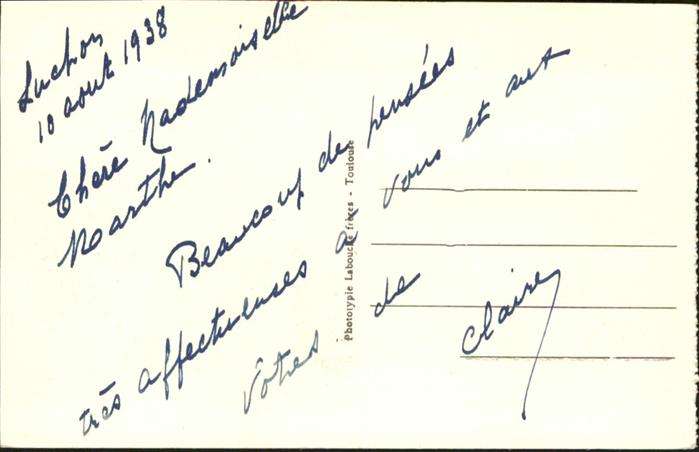 Luchon
10 aout 1938
Chère Mademoiselle
Marthe.
Beaucoup de pensées
très affectueuses à vous et aux
vôtres de
Claire
Phototypie Labouche frères - Toulouse